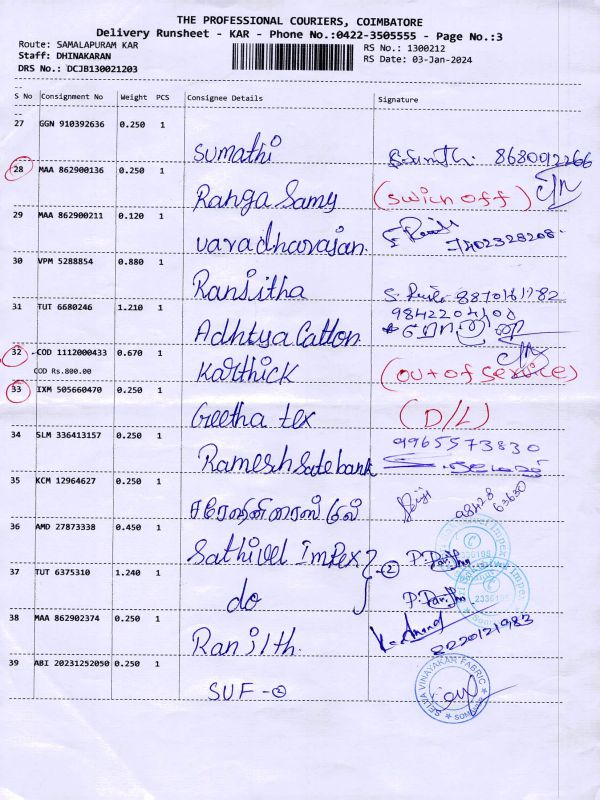 THE PROFESSIONAL COURIERS, COIMBATORE
Delivery Runsheet - KAR - Phone No.:0422-3505555 - Page No.:3
Route: SAMALAPURAM KAR
RS No.: 1300212
Staff: DHINAKARAN
RS Date: 03-Jan-2024
DRS No.: DCJB130021203
S No Consignment No Weight PCS Consignee Details Signature
27 GGN 910392636 0.250 1
Sumathi 8680912266
28 MAA 862900136 0.250 1
Ranga Samy (Swich off)
29 MAA 862900211 0.120 1
varadharajan. 7402328208
30 VPM 5288854 0.880 1
Ransitha
31 TUT 6680246 1.210 1
9842204101
Adhtya Catton
32 COD 1112000433 0.670 1
COD Rs.800.00
Karthick (out of service)
33 IXM 505660470 0.250 1
Geetha tex (D/L)
34 SLM 336413157 0.250 1
9965573830
Ramesh Sate bank
35 KCM 12964627 0.250 1
98428
63630
36 AMD 27873338 0.450 1
Sathivel Impex - 2
37 TUT 6375310 1.240 1
do
2336198
38 MAA 862902374 0.250 1
Ranjith.
39 ABI 20231252050 0.250 1
SUF - 2
SELVA VINAYAKAR FABRIC